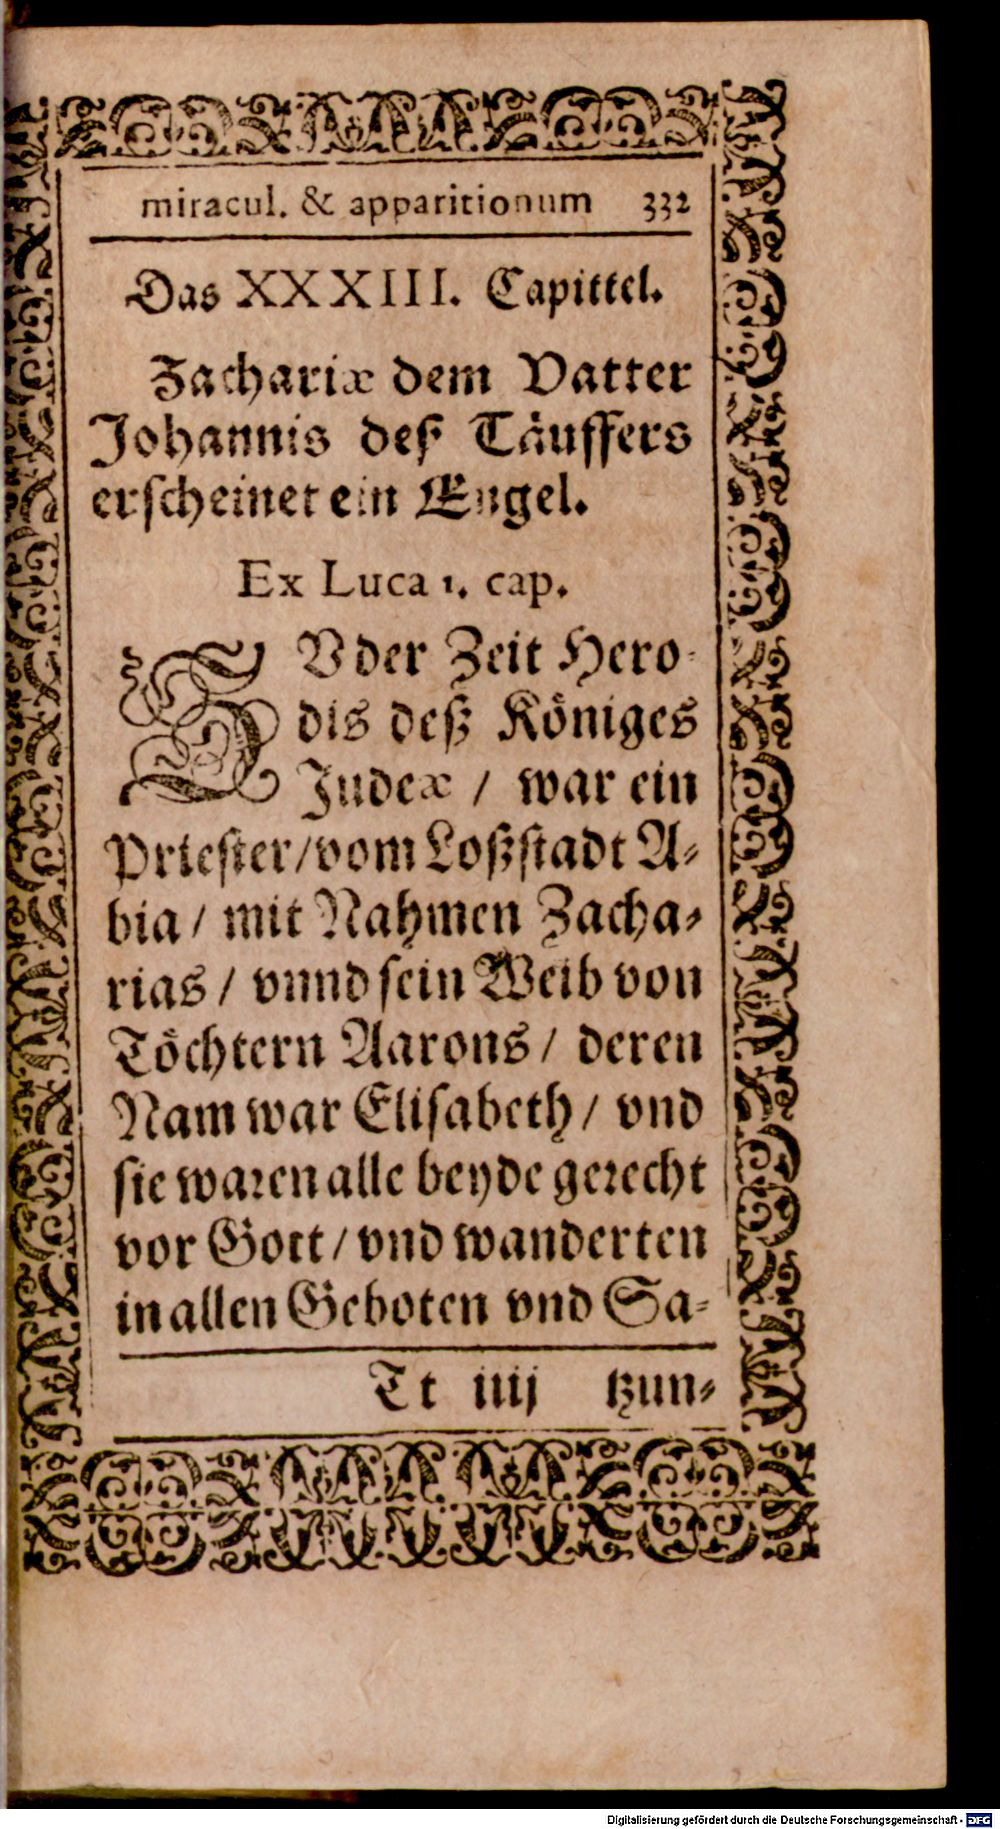 miracul. & apparitionum 332
Das XXXIII. Capittel.
Zachariæ dem Vatter
Johannis deß Täuffers
erscheinet ein Engel.
Ex Luca 1. cap.
ZVder Zeit Hero-
dis deß Königes
Judeæ / war ein
Priester/vom Loßstadt A-
bia / mit Nahmen Zacha-
rias / vnnd sein Weib von
Töchtern Aarons / deren
Nam war Elisabeth / vnd
sie waren alle beyde gerecht
vor Gott / vnd wanderten
in allen Geboten vnd Sa-
Tt iiij tzun-
Digitalisierung gefördert durch die Deutsche Forschungsgemeinschaft - DFG